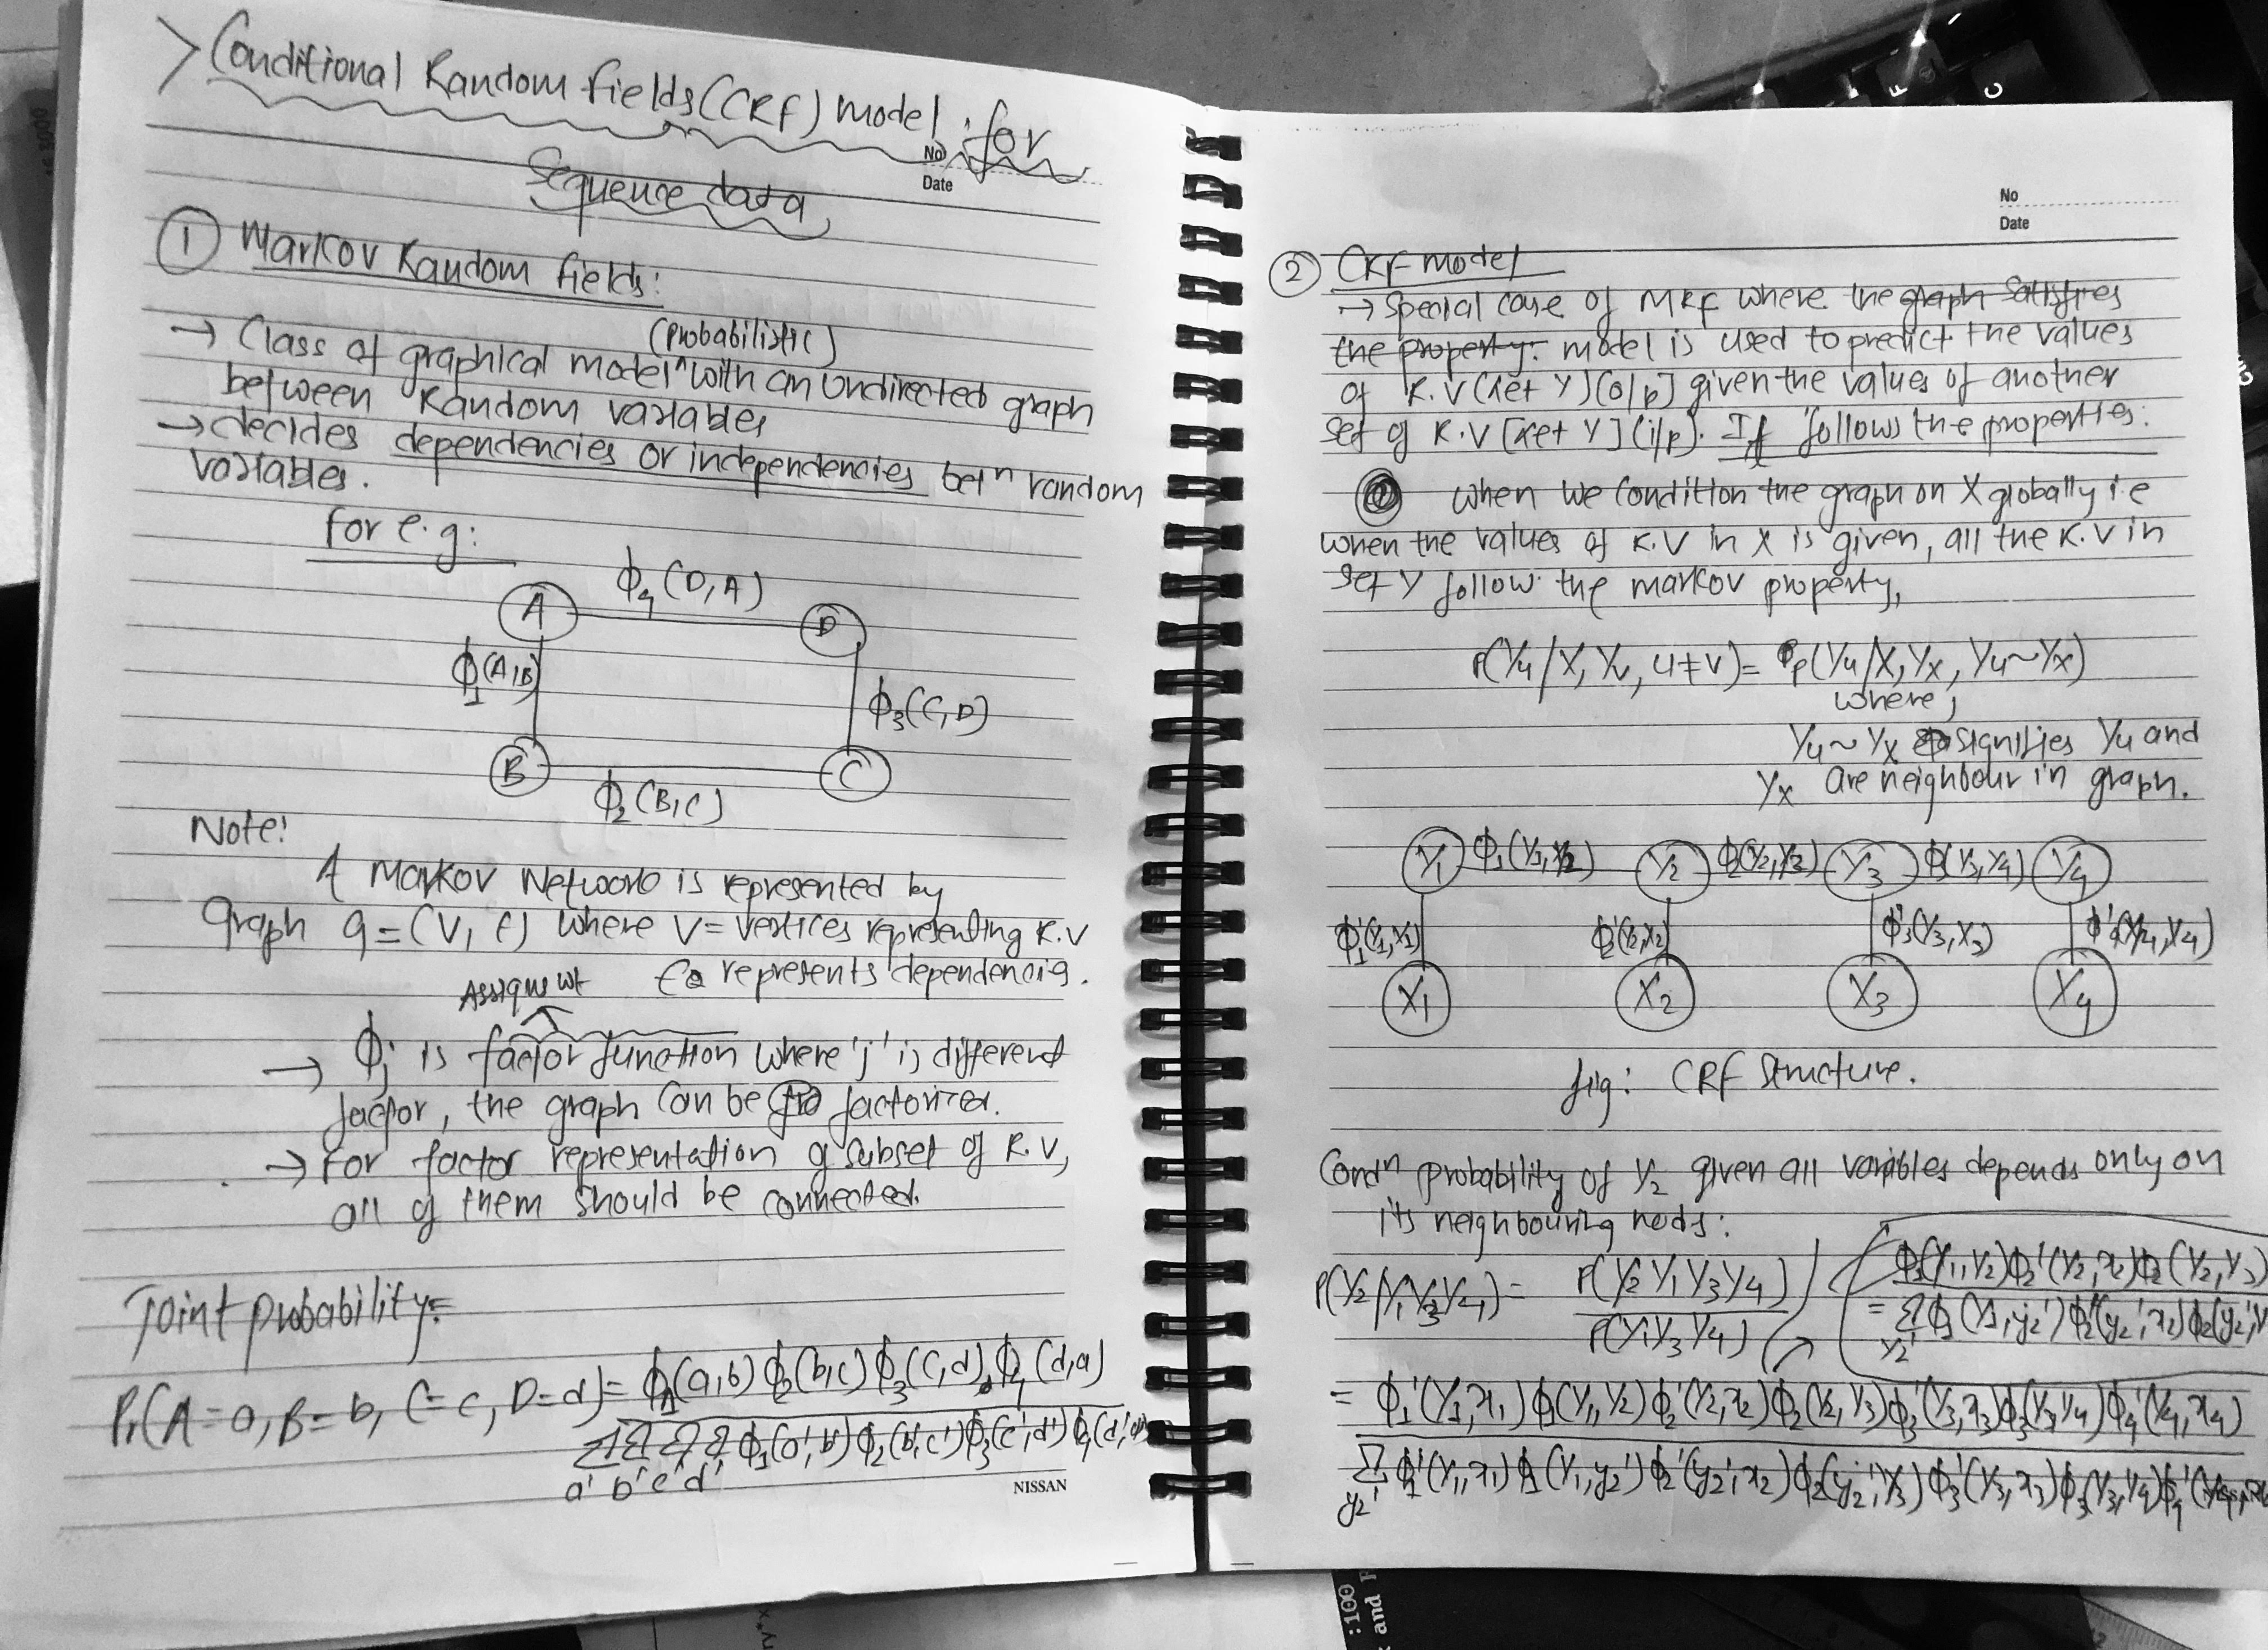 > Conditional Random Fields (CRF) model for
No
Date
Sequence data
① Markov Random Fields:
(Probabilistic)
→ Class of graphical model ^ with an undirected graph
between Random variables
→ decides dependencies or independencies betⁿ random
variables.
for e.g:
A ϕ₄(D,A) D
ϕ₁(A,B)
ϕ₃(C,D)
B ϕ₂(B,C) C
Note:
A Markov Network is represented by
Graph G = (V, E) where V = vertices representing R.V
E represents dependencies.
Assigne wt
→ ϕj is factor function where 'j' is different
factor, the graph can be factorized.
→ For factor representation of subset of R.V,
all of them should be connected.
Joint probability:
P(A=a, B=b, C=c, D=d) = ϕ₁(a,b) ϕ₂(b,c) ϕ₃(c,d) ϕ₄(d,a)
Σ Σ Σ Σ ϕ₁(a',b') ϕ₂(b',c') ϕ₃(c',d') ϕ₄(d',a')
a' b' c' d'
NISSAN
No
Date
② CRF model
→ special case of MRF where the graph satisfies
the property: model is used to predict the values
of R.V (set Y) (o/p) given the values of another
set of R.V [set Y] (i/p). It follows the properties:
When we condition the graph on X globally i.e
when the values of R.V in X is given, all the R.V in
set Y follow the markov property,
P(Yu/X, Yv, u≠v) = P(Yu/X, Yx, Yu~Yx)
where,
Yu~Yx signifies Yu and
Yx are neighbour in graph.
Y₁ ϕ₁(Y₁,Y₂) Y₂ ϕ₂(Y₂,Y₃) Y₃ ϕ₃(Y₃,Y₄) Y₄
ϕ₁'(Y₁,X₁) ϕ₂'(Y₂,X₂) ϕ₃'(Y₃,X₃) ϕ₄'(Y₄,X₄)
X₁ X₂ X₃ X₄
fig: CRF Structure.
Condⁿ probability of Y₂ given all variables depends only on
its neighbouring nods:
P(Y₂/Y₁Y₃Y₄) = P(Y₂Y₁Y₃Y₄)
P(Y₁Y₃Y₄)
ϕ₁(Y₁,Y₂)ϕ₂'(Y₂,x₂)ϕ₂(Y₂,Y₃)
= Σ ϕ₁(Y₁,y₂')ϕ₂'(y₂',x₂)ϕ₂(y₂',
y₂'
= ϕ₁'(Y₁,x₁)ϕ₁(Y₁,Y₂)ϕ₂'(Y₂,x₂)ϕ₂(Y₂,Y₃)ϕ₃'(Y₃,x₃)ϕ₃(Y₃,Y₄)ϕ₄'(Y₄,x₄)
Σ ϕ₁'(Y₁,x₁)ϕ₁(Y₁,y₂')ϕ₂'(y₂',x₂)ϕ₂(y₂',Y₃)ϕ₃'(Y₃,x₃)ϕ₃(Y₃,Y₄)ϕ₄'(
y₂'
:100
and F